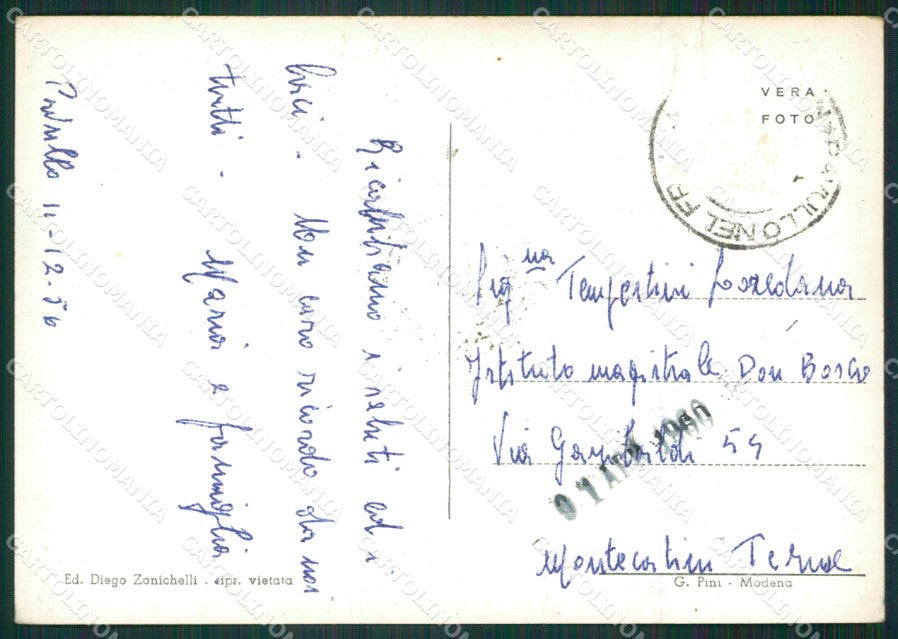 Pavullo 11-12-56
Ricambiamo i saluti ed i
baci. Un caro ricordo da noi
tutti.
Maria e famiglia
VERA
FOTO
PAVULLO NEL FR
Sig.na Tempestini Loredana
Istituto magistrale Don Bosco
Via Garibaldi 54
01 APR 1960
Montecatini Terme
Ed. Diego Zanichelli . ripr. vietata
G. Pini - Modena
CARTOLINOMANIA